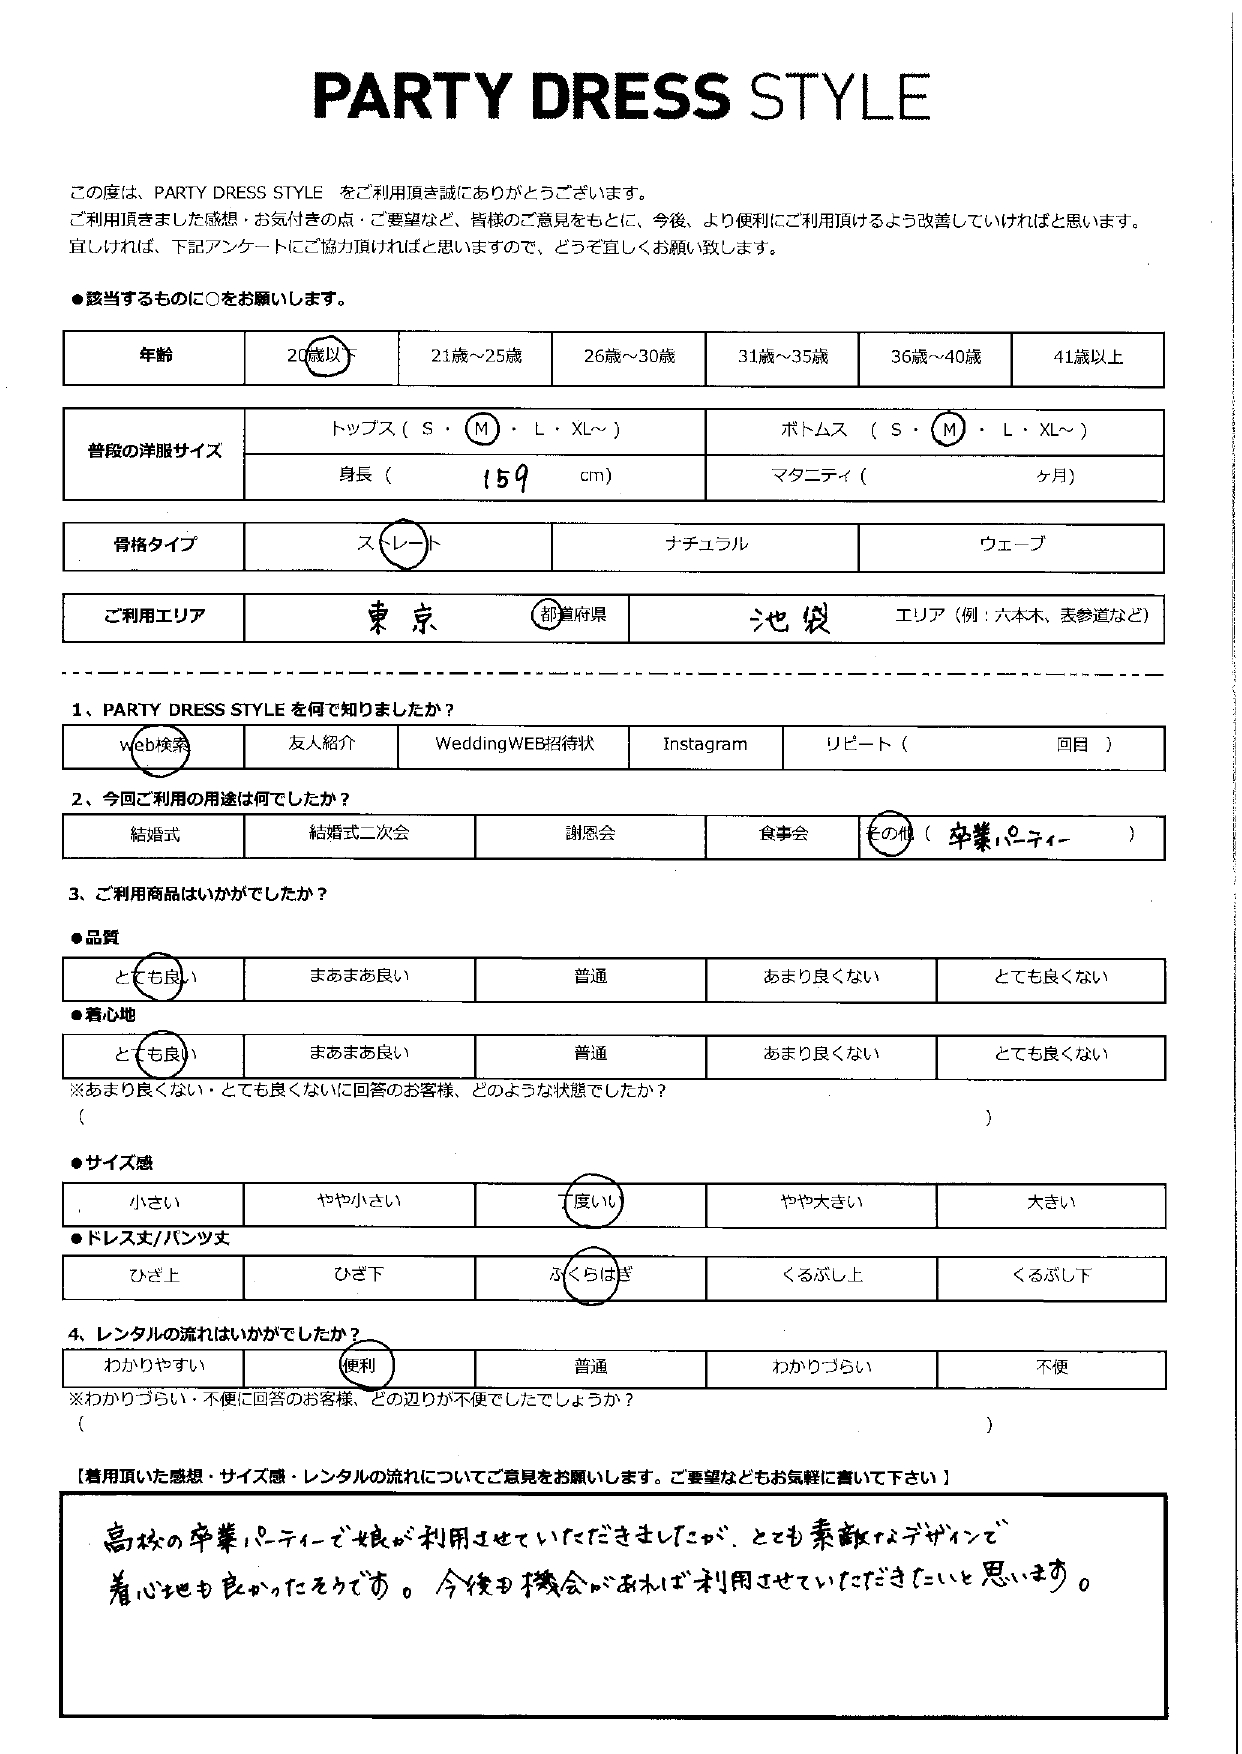 PARTY DRESS STYLE
この度は、PARTY DRESS STYLE をご利用頂き誠にありがとうございます。
ご利用頂きました感想・お気付きの点・ご要望など、皆様のご意見をもとに、今後、より便利にご利用頂けるよう改善していければと思います。
宜しければ、下記アンケートにご協力頂ければと思いますので、どうぞ宜しくお願い致します。
●該当するものに○をお願いします。
年齢 20歳以下 21歳～25歳 26歳～30歳 31歳～35歳 36歳～40歳 41歳以上
普段の洋服サイズ
トップス ( S ・ M ・ L ・ XL～ ) ボトムス ( S ・ M ・ L ・ XL～ )
身長 ( 159 cm) マタニティ ( ヶ月)
骨格タイプ ストレート ナチュラル ウェーブ
ご利用エリア 東京 都道府県 池袋 エリア（例：六本木、表参道など）
1、PARTY DRESS STYLE を何で知りましたか？
web検索 友人紹介 WeddingWEB招待状 Instagram リピート ( 回目 )
2、今回ご利用の用途は何でしたか？
結婚式 結婚式二次会 謝恩会 食事会 その他 ( 卒業パーティー )
3、ご利用商品はいかがでしたか？
●品質
とても良い まあまあ良い 普通 あまり良くない とても良くない
●着心地
とても良い まあまあ良い 普通 あまり良くない とても良くない
※あまり良くない・とても良くないに回答のお客様、どのような状態でしたか？
( )
●サイズ感
小さい やや小さい 丁度いい やや大きい 大きい
●ドレス丈/パンツ丈
ひざ上 ひざ下 ふくらはぎ くるぶし上 くるぶし下
4、レンタルの流れはいかがでしたか？
わかりやすい 便利 普通 わかりづらい 不便
※わかりづらい・不便に回答のお客様、どの辺りが不便でしたでしょうか？
( )
【着用頂いた感想・サイズ感・レンタルの流れについてご意見をお願いします。ご要望などもお気軽に書いて下さい 】
高校の卒業パーティーで娘が利用させていただきましたが、とても素敵なデザインで
着心地も良かったそうです。今後も機会があれば利用させていただきたいと思います。